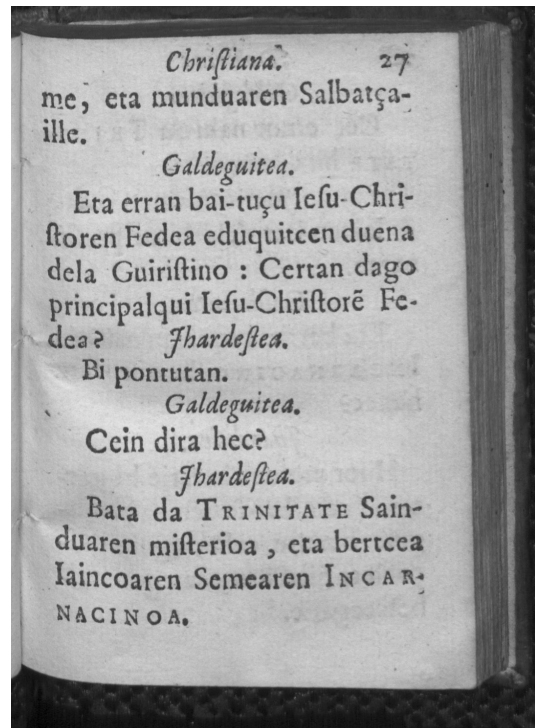 Chriſtiana. 27
me, eta munduaren Salbatça-
ille.
Galdeguitea.
Eta erran bai-tuçu Ieſu-Chri-
ſtoren Fedea eduquitcen duena
dela Guiriſtino : Certan dago
principalqui Ieſu-Chriſtorẽ Fe-
dea? Jhardeſtea.
Bi pontutan.
Galdeguitea.
Cein dira hec?
Jhardeſtea.
Bata da TRINITATE Sain-
duaren miſterioa , eta bertcea
Iaincoaren Semearen INCAR-
NACINOA.